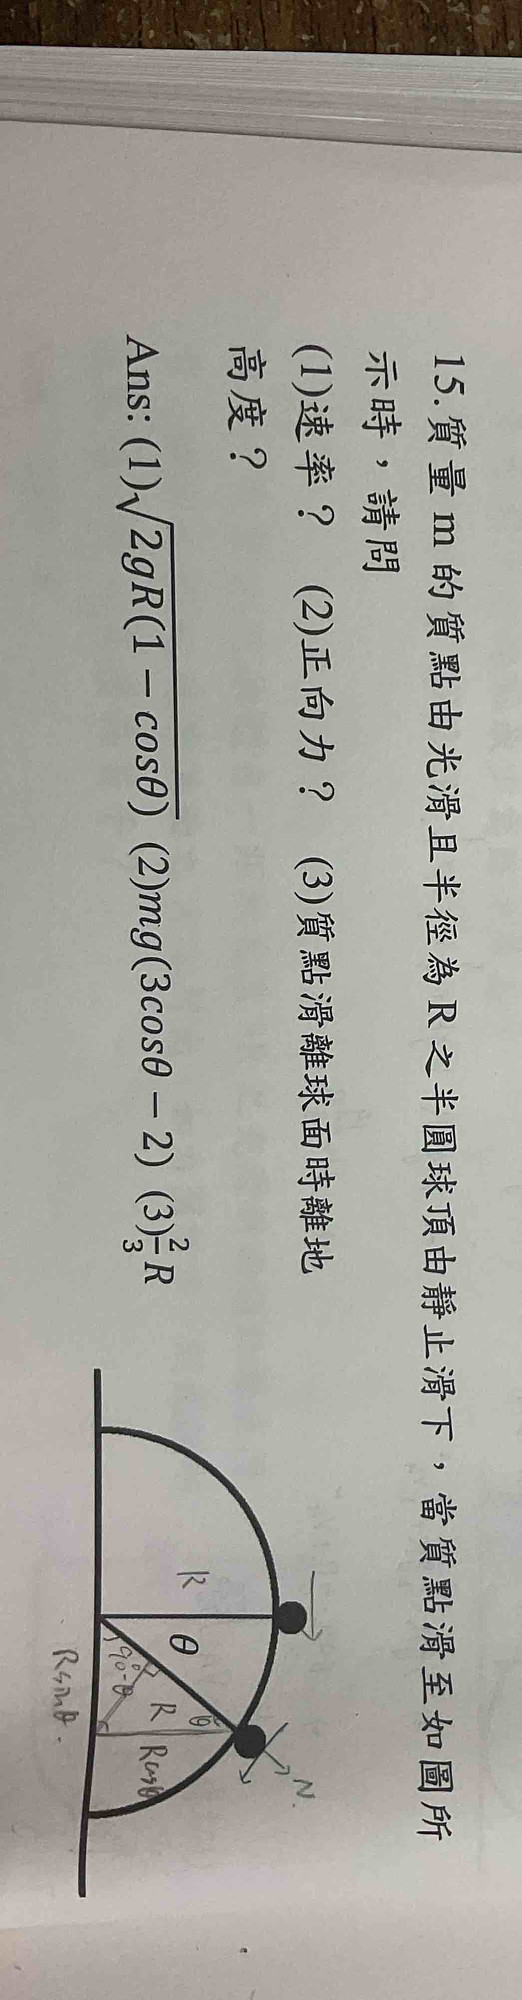 15.質量 m 的質點由光滑且半徑為 R 之半圓球頂由靜止滑下，當質點滑至如圖所
示時，請問
(1)速率？ (2)正向力？ (3)質點滑離球面時離地
高度？
Ans: (1)√2gR(1−cosθ) (2)mg(3cosθ−2) (3)2/3R
R
θ
N.
θ
R
90-θ
Rcosθ
Rsinθ.